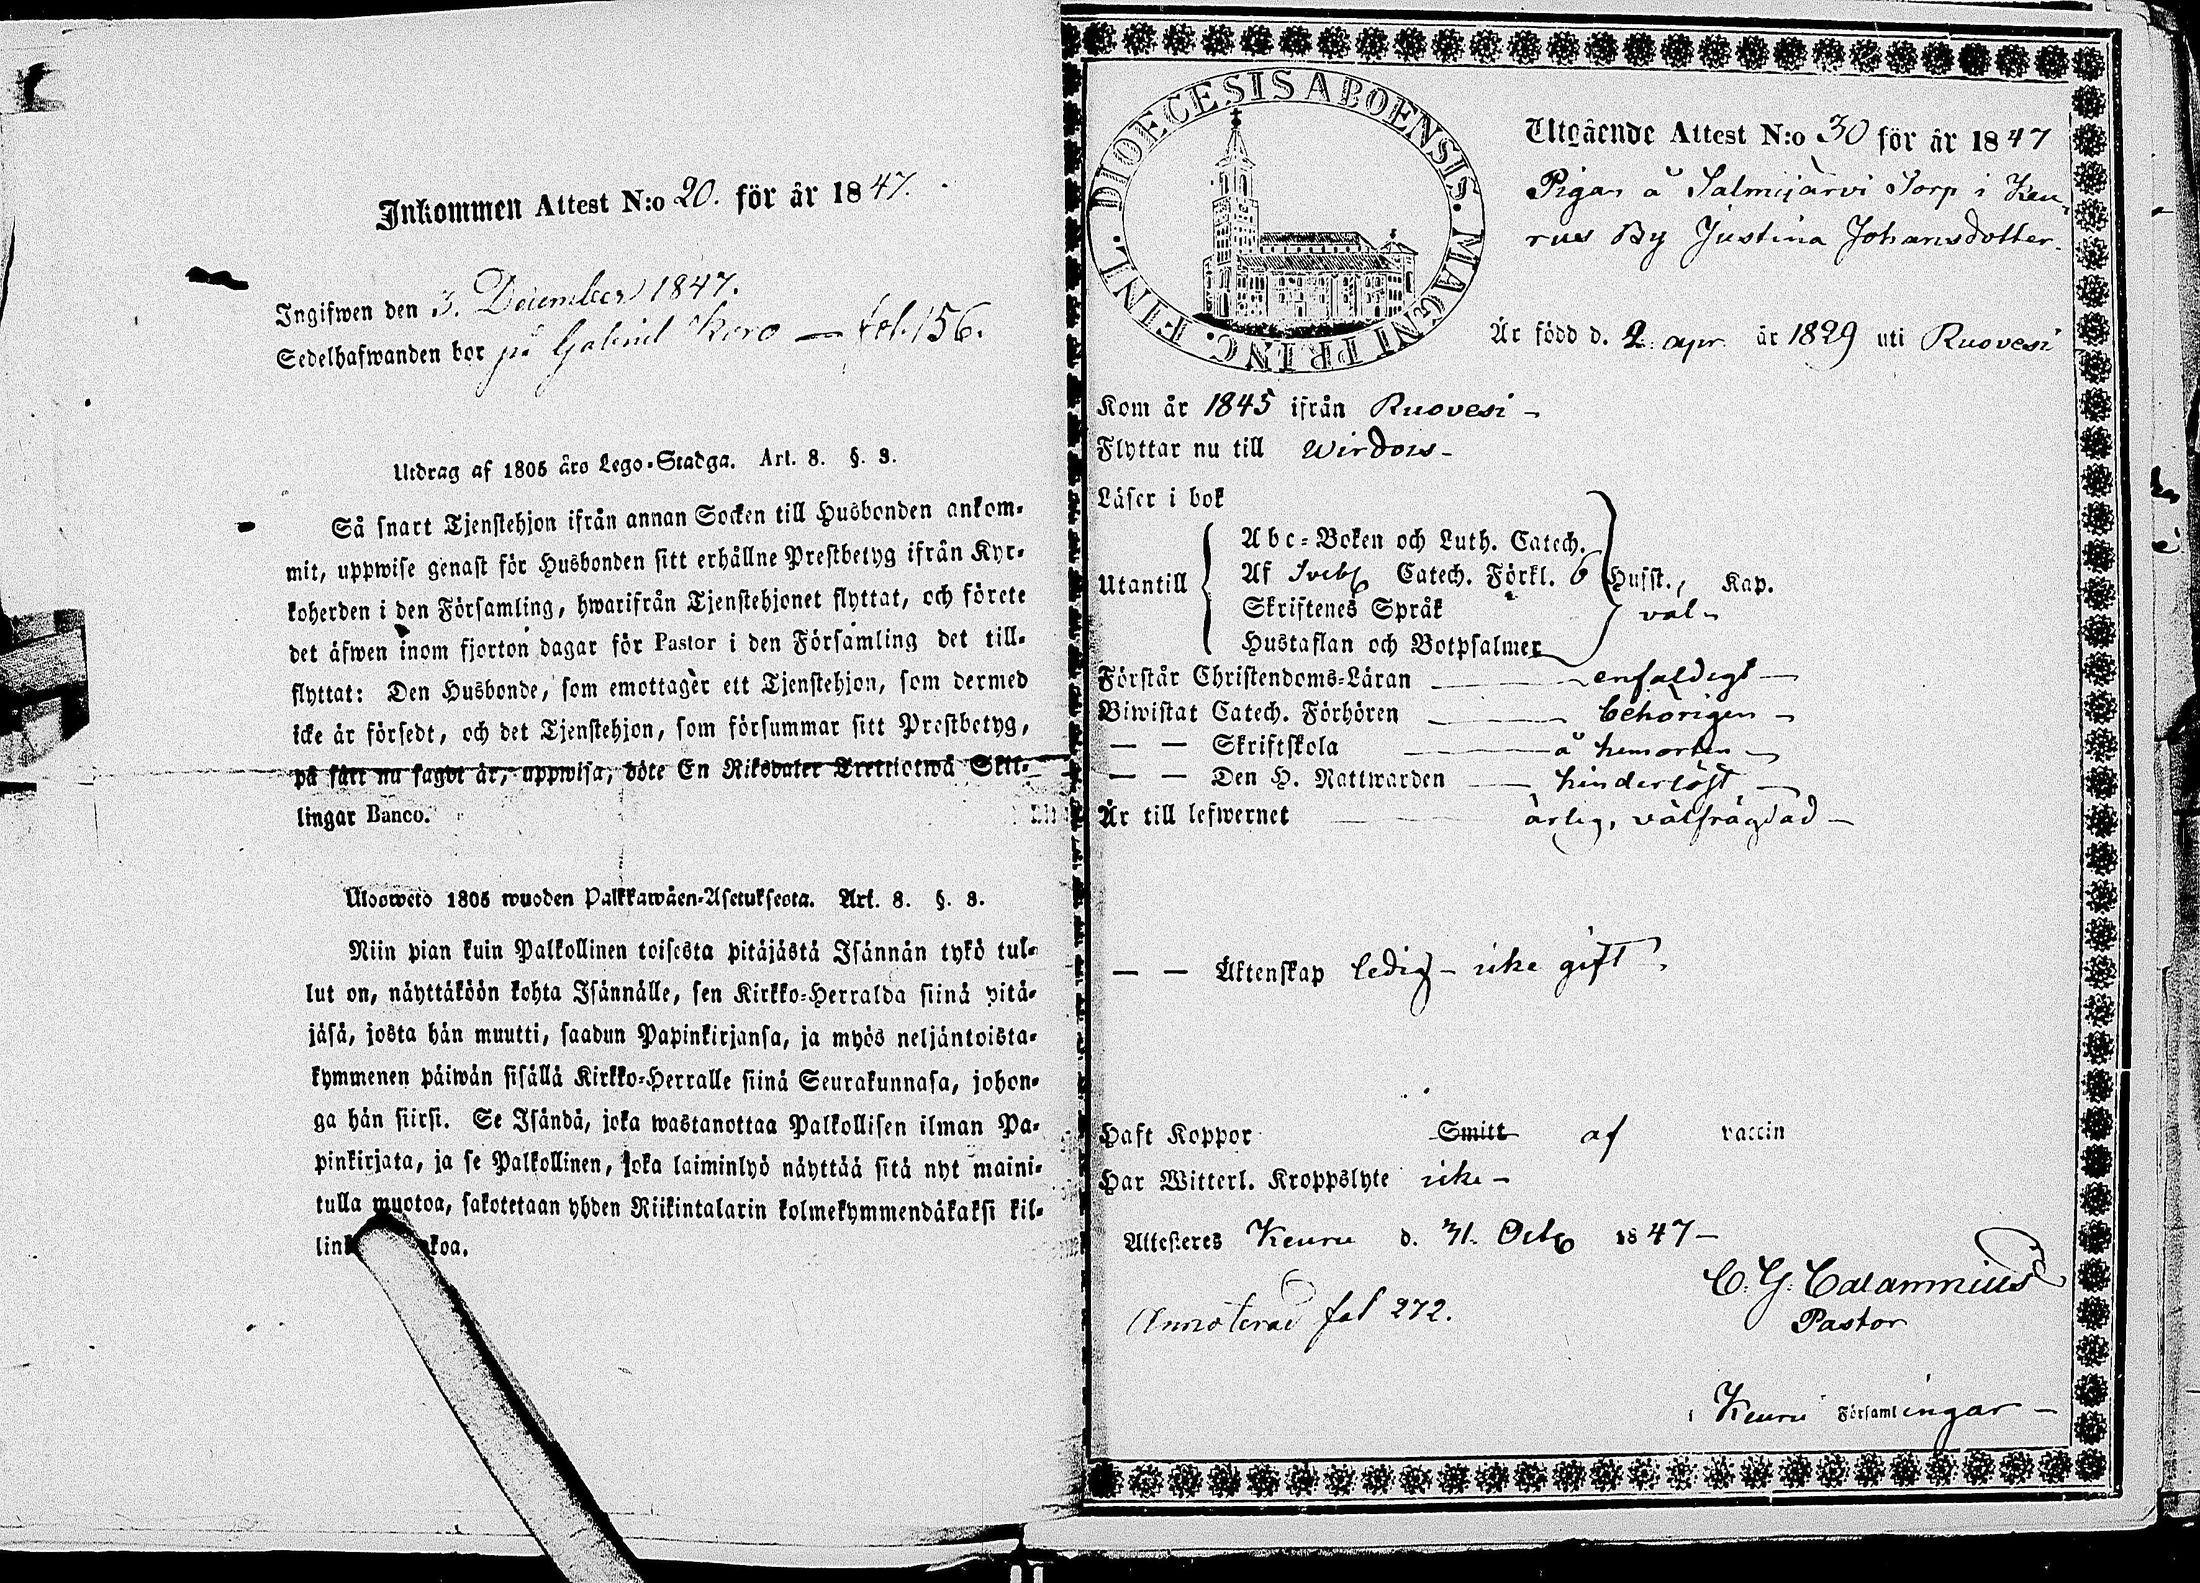 Inkommen Attest N:o 20. för år 1847.
Ingifwen den 3. December 1847.
Sedelhafwanden bor på Gabriel Kero — fol. 156.
Utdrag af 1805 års Lego-Stadga. Art. 8. §. 8.
Så snart Tjenstehjon ifrån annan Socken till Husbonden ankom-
mit, uppwise genast för Husbonden sitt erhållne Prestbetyg ifrån Kyr-
koherden i den Församling, hwarifrån Tjenstehjonet flyttat, och förete
det äfwen inom fjorton dagar för Pastor i den Församling det till-
flyttat: Den Husbonde, som emottager ett Tjenstehjon, som dermed
icke är försedt, och det Tjenstehjon, som försummar sitt Prestbetyg,
på sätt nu sagdt är, uppwisa, böte En Riksdaler Trettiotwå Skil-
lingar Banco.
Ulosweto 1805 wuoden Palkkawäen-Asetuksesta. Art. 8. §. 8.
Niin pian kuin Palkollinen toisesta pitäjästä Isännän tykö tul-
lut on, näyttäköön kohta Isännälle, sen Kirkko-Herralda siinä pitä-
jäsä, josta hän muutti, saadun Papinkirjansa, ja myös neljäntoista-
kymmenen päiwän sisällä Kirkko-Herralle siinä Seurakunnasa, johon-
ga hän siirsi. Se Isändä, joka wastanottaa Palkollisen ilman Pa-
pinkirjata, ja se Palkollinen, joka laiminlyö näyttää sitä nyt maini-
tulla muotoa, sakotetaan yhden Riikintalarin kolmekymmendäkaksi kil-
link koa.
DIOECESIS ABOENSIS. MAGNI PRINC. FINL.
Utgående Attest N:o 30 för år 1847
Pigan å Salmijärvi Torp i Keu-
rus By Justina Johansdotter.
Är född d. 2. apr. år 1829 uti Ruovesi
Kom år 1845 ifrån Ruovesi -
Flyttar nu till Wirdois -
Läser i bok
Abc-Boken och Luth. Catech.
Utantill Af Svebs Catech. Förkl. 6 Husst., Kap.
Skriftenes Språk väl -
Hustaflan och Botpsalmer
Förstår Christendoms-Läran — enfaldigt —
Biwistat Catech. Förhören — behörigen —
— — Skriftskola — å hemorten —
— — Den H. Nattwarden — hinderlöst —
Är till lefwernet — ärlig, välfrägdad —
— — Äktenskap ledig - icke gift.
Haft Koppor Smitt af vaccin
Har Witterl. Kroppslyte icke -
Attesteres Keuru d. 31. Octb 1847 -
C. G. Calamnius
Annoterad fol 272.
Pastor
i Keuru Församlingar —